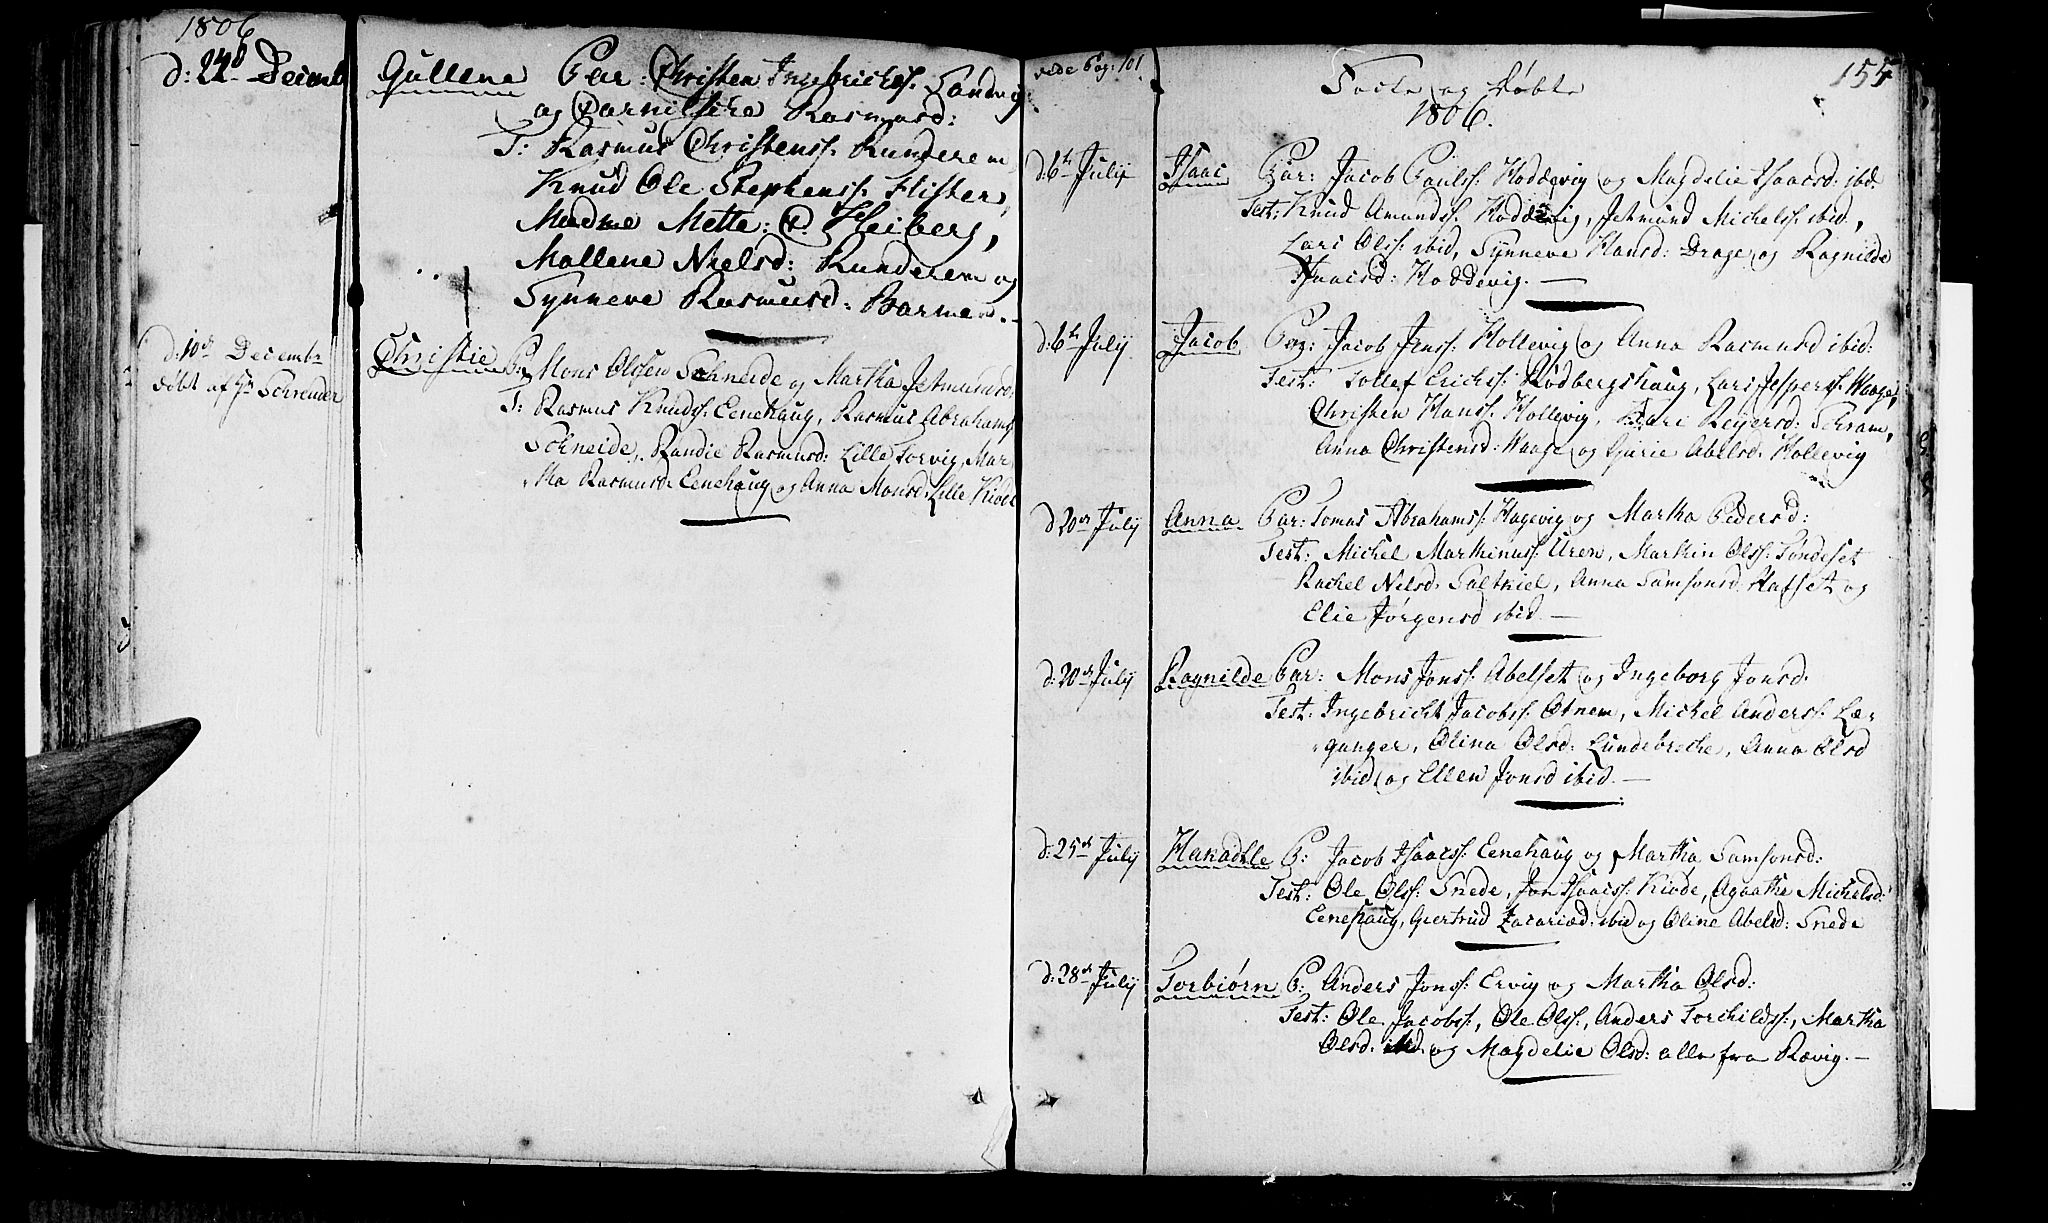 1806
d: 24d Decemb
Gullene Par: Christen Ingebrichts. Sandvig
og Pernilsche Rasmusd:
T: Rasmus Christens. Runderem,
Knud Ole Stephens. Flister,
Madme Mette: C. Heiberg,
Mallene Nielsd: Runderem og
Synneve Rasmusd: Barmen.
d: 10de Decembr
døbt af Hr Schreuder
Christie P: Mons Olssen Schneide og Martha Jetmundsd:
T: Rasmus Knuds. Eenehaug, Rasmus Abrahams.
Schneide, Randie Rasmusd: Lille Torvig, Mar-
tha Rasmusd: Eenehaug og Anna Monsd: Lille Kiøde
vide Pag: 101
155
Fødte og Døbte
1806.
d: 6te July Isaac Par: Jacob Pauls: Hoddevig og Magdelie Isaacsd: ibd.
Test: Knud Amunds: Hoddevig, Jetmund Michels: ibid,
Lars Ols: ibid, Synneve Hansd: Drage og Ragnilde
Isaacsd: Hoddevig. —
d: 6te July Jacob Par: Jacob Jens: Hollevig og Anna Rasmusd ibid:
Test: Tollef Erichs: Rødbergshaug, Lars Jespers: Waage,
Christen Hans: Hollevig, Kari Reyersd: Schram,
Anna Christensd: Waage og Gjurie Abelsd. Hollevig
d 20de July Anna Par: Tomas Abrahams: Hagevig og Martha Pedersd:
Test: Michel Marthinus: Uren, Marthin Ols: Tøndeset
Rachel Nielsd. Saltkiel, Anna Samsonsd. Hafset og
Elie Jørgensd ibid. —
d: 20de July Ragnilde Par: Mons Jons: Abelset og Ingeborg Jonsd.
Test: Ingebricht Jacobs: Otnem, Michel Anders: Lær-
ganger, Olina Olsd: Lundebreche, Anna Olsd
ibid og Ellen Jonsd ibid. —
d: 25de July P: Jacob Isaacs: Eenehaug og Martha Samsonsd:
Test: Ole Ols: Snede, Jon Isaacs: Kiøde, Agaathe Michelsd:
Eenehaug, Giertrud Zacariæd: ibid og Oline Abelsd: Snede
d: 28de July Torbiørn P: Anders Jons: Ervig og Martha Olsd:
Test: Ole Jacobs:, Ole Ols:, Anders Torchilds:, Martha
Olsd: og Magdelie Olsd: alle fra Rævig. —